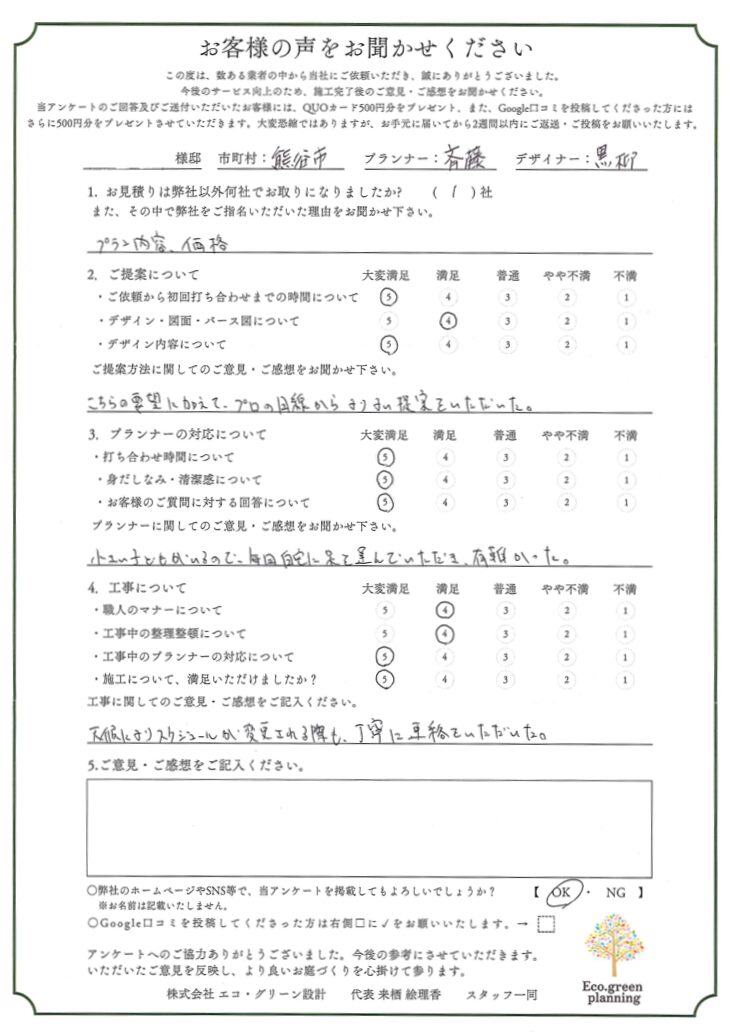 お客様の声をお聞かせください
この度は、数ある業者の中から当社にご依頼いただき、誠にありがとうございました。
今後のサービス向上のため、施工完了後のご意見・ご感想をお聞かせください。
当アンケートのご回答及びご送付いただいたお客様には、QUOカード500円分をプレゼント、また、Google口コミを投稿してくださった方には
さらに500円分をプレゼントさせていただきます。大変恐縮ではありますが、お手元に届いてから2週間以内にご返送・ご投稿をお願いいたします。
様邸 市町村：熊谷市 プランナー：斉藤 デザイナー：黒柳
1. お見積りは弊社以外何社でお取りになりましたか? ( 1 )社
また、その中で弊社をご指名いただいた理由をお聞かせ下さい。
プラン内容、価格
2. ご提案について 大変満足 満足 普通 やや不満 不満
・ご依頼から初回打ち合わせまでの時間について 5 4 3 2 1
・デザイン・図面・パース図について 5 4 3 2 1
・デザイン内容について 5 4 3 2 1
ご提案方法に関してのご意見・ご感想をお聞かせ下さい。
こちらの要望に加えて、プロの目線からよりよい提案をいただいた。
3. プランナーの対応について 大変満足 満足 普通 やや不満 不満
・打ち合わせ時間について 5 4 3 2 1
・身だしなみ・清潔感について 5 4 3 2 1
・お客様のご質問に対する回答について 5 4 3 2 1
プランナーに関してのご意見・ご感想をお聞かせ下さい。
小さい子どもがいるので、毎回自宅に足を運んでいただき、有難かった。
4. 工事について 大変満足 満足 普通 やや不満 不満
・職人のマナーについて 5 4 3 2 1
・工事中の整理整頓について 5 4 3 2 1
・工事中のプランナーの対応について 5 4 3 2 1
・施工について、満足いただけましたか？ 5 4 3 2 1
工事に関してのご意見・ご感想をご記入ください。
天候によりスケジュールが変更される際も、丁寧に連絡をいただいた。
5.ご意見・ご感想をご記入ください。
〇弊社のホームページやSNS等で、当アンケートを掲載してもよろしいでしょうか？ 【 OK ・ NG 】
※お名前は記載いたしません。
〇Google口コミを投稿してくださった方は右側□に✓をお願いいたします。→
アンケートへのご協力ありがとうございました。今後の参考にさせていただきます。
いただいたご意見を反映し、より良いお庭づくりを心掛けて参ります。
株式会社 エコ・グリーン設計 代表 来栖 絵理香 スタッフ一同
Eco.green
planning